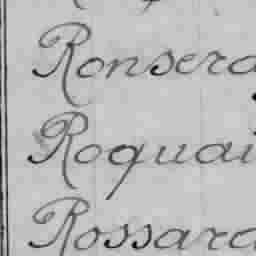 Ronsera
Roquai
Rossard